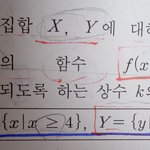 집합 X, Y에 대하
의 함수 f(x
되도록 하는 상수 k의
{x|x ≥4}, Y={y|